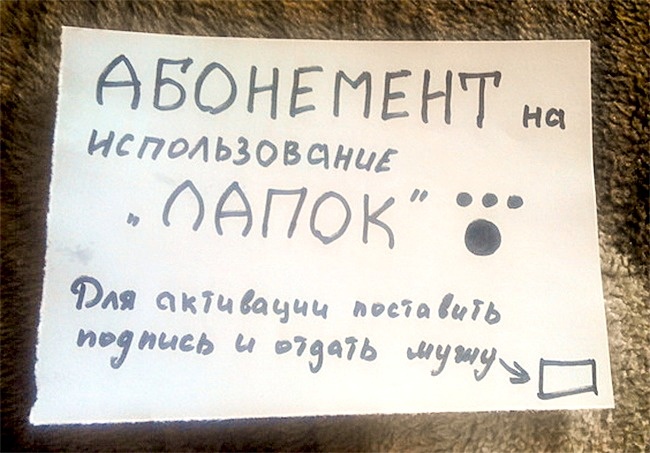 АБОНЕМЕНТ на
использование
„ЛАПОК”
Для активации поставить
подпись и отдать мужу